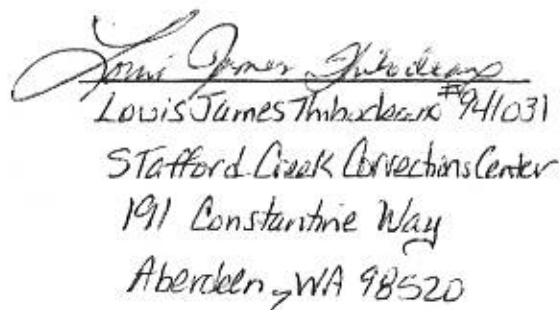 Louis James Thibodeaux
Louis James Thibodeaux #941031
STafford Creek Corrections Center
191 Constantine Way
Aberdeen, WA 98520